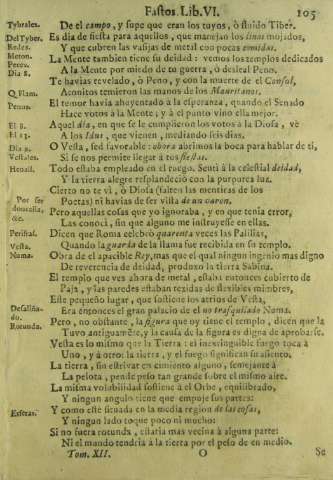 Fastos. Lib. VI. 105
Tybrales. De el campo, y supe que eran los tuyos, ò stuido Tiber.
Del Tyber. Es dia de fiesta para aquellos, que manejan los linos mojados,
Redes. Y que cubren las vasijas de metil con pocas comidas.
Meton. La Mente tambien tiene su deidad: vemos los templos dedicados
Peno. A la Mente por miedo de tu guerra, ò desleal Peno.
Dia 8. Te havias revelado, ò Peno, y con la muerte de el Consul,
Q. Flam. Aconitos temieron las manos de los Mauritanos.
Penus. El temor havia ahuyentado à la esperanza, quando el Senado
Hace votos à la Mente, y à el punto vino ella mejor.
El 8. Aquel dia, en que se le cumplieron los votos à la Diosa, vè
El 13. A los Idus, que vienen, mediando seis dias.
Dia 9. O Vesta, sed favorable: ahora abrimos la boca para hablar de ti,
Vestales. Si se nos permite llegar à tus fiestas.
Henall. Todo estaba empleado en el ruego. Sentí à la celestial deidad,
Y la tierra alegre resplandeció con la purpurea luz.
Cierto no te ví, ò Diosa (falten las mentiras de los
Por ser Poetas) ni havias de ser vista de un varon,
doncella, Pero aquellas cosas que yo ignoraba, y en que tenia error,
&c. Las conocí, sin que alguno me instruyesse en ellas.
Perifras. Dicen que Roma celebró quarenta veces las Palilias,
Vesta. Quando la guarda de la llama fue recibida en su templo.
Numa. Obra de el apacible Rey, mas que el qual ningun ingenio mas digno
De reverencia de deidad, produxo la tierra Sabina.
El templo que ves ahora de metal, estaba entonces cubierto de
Paja, y las paredes estaban texidas de flexibles mimbres,
Este pequeño lugar, que sostiene los atrios de Vesta,
Desaliñado. Era entonces el gran palacio de el no trasquilado Numa.
Rotunda. Pero, no obstante, la figura que oy tiene el templo, dicen que la
Tuvo antiguamẽte, y la causa de la figura es digna de aprobarse.
Vesta es lo mismo que la Tierra: el inextinguible fuego toca à
Uno, y à otro: la tierra, y el fuego significan su asiento.
La tierra, sin estrivar en cimiento alguno, semejante à
La pelota, pende peso tan grande sobre el mismo aire.
La misma volubilidad sostiene à el Orbe, equilibrado,
Y ningun angulo tiene que empuje sus partes:
Esferas. Y como esté situada en la media region de las cosas,
Y ningun lado toque poco ni mucho:
Si no fuera rotunda, estaria mas vecina à alguna parte:
Ni el mundo tendria à la tierra por el peso de en medio.
Tom. XII. O Se